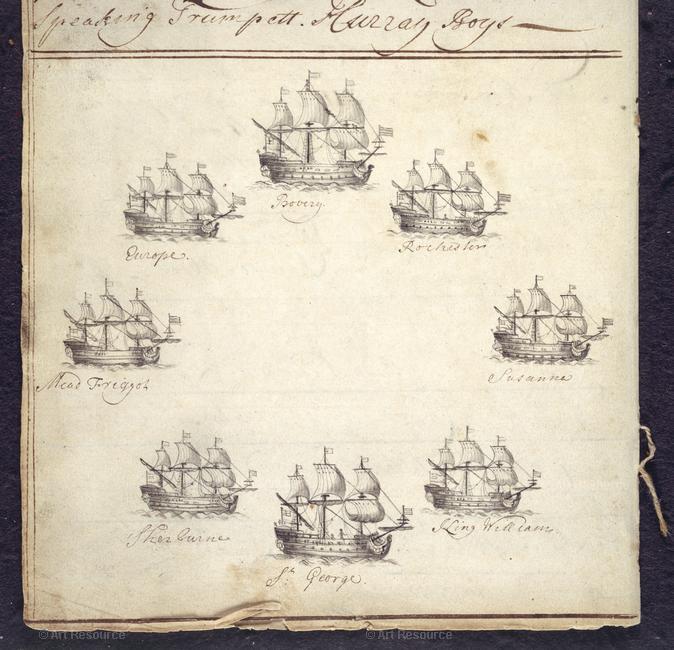 Speaking Trumpett. Hurray Boys
Bovery.
Europe.
Rochester
Mead Friggot
Susanna
Sherburne
King William.
St. George.
© Art Resource
© Art Resource